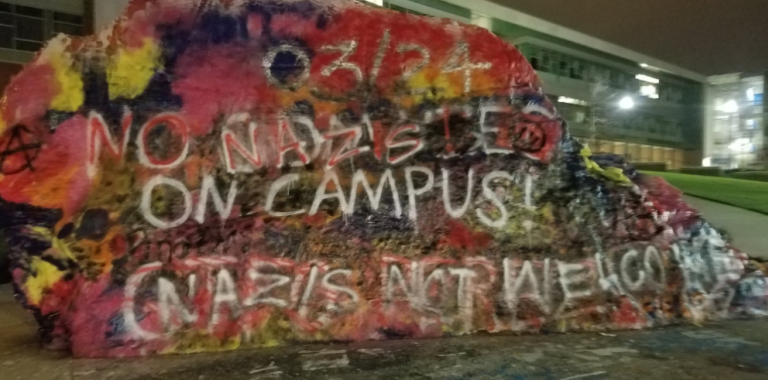 03/24
NO NAZI'S
ON CAMPUS!
(NAZI'S NOT WELCOME